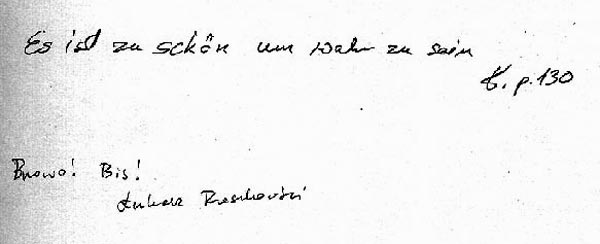 Es ist zu schön um wahr zu sein
p. 130
Brawo! Bis!
Łukasz